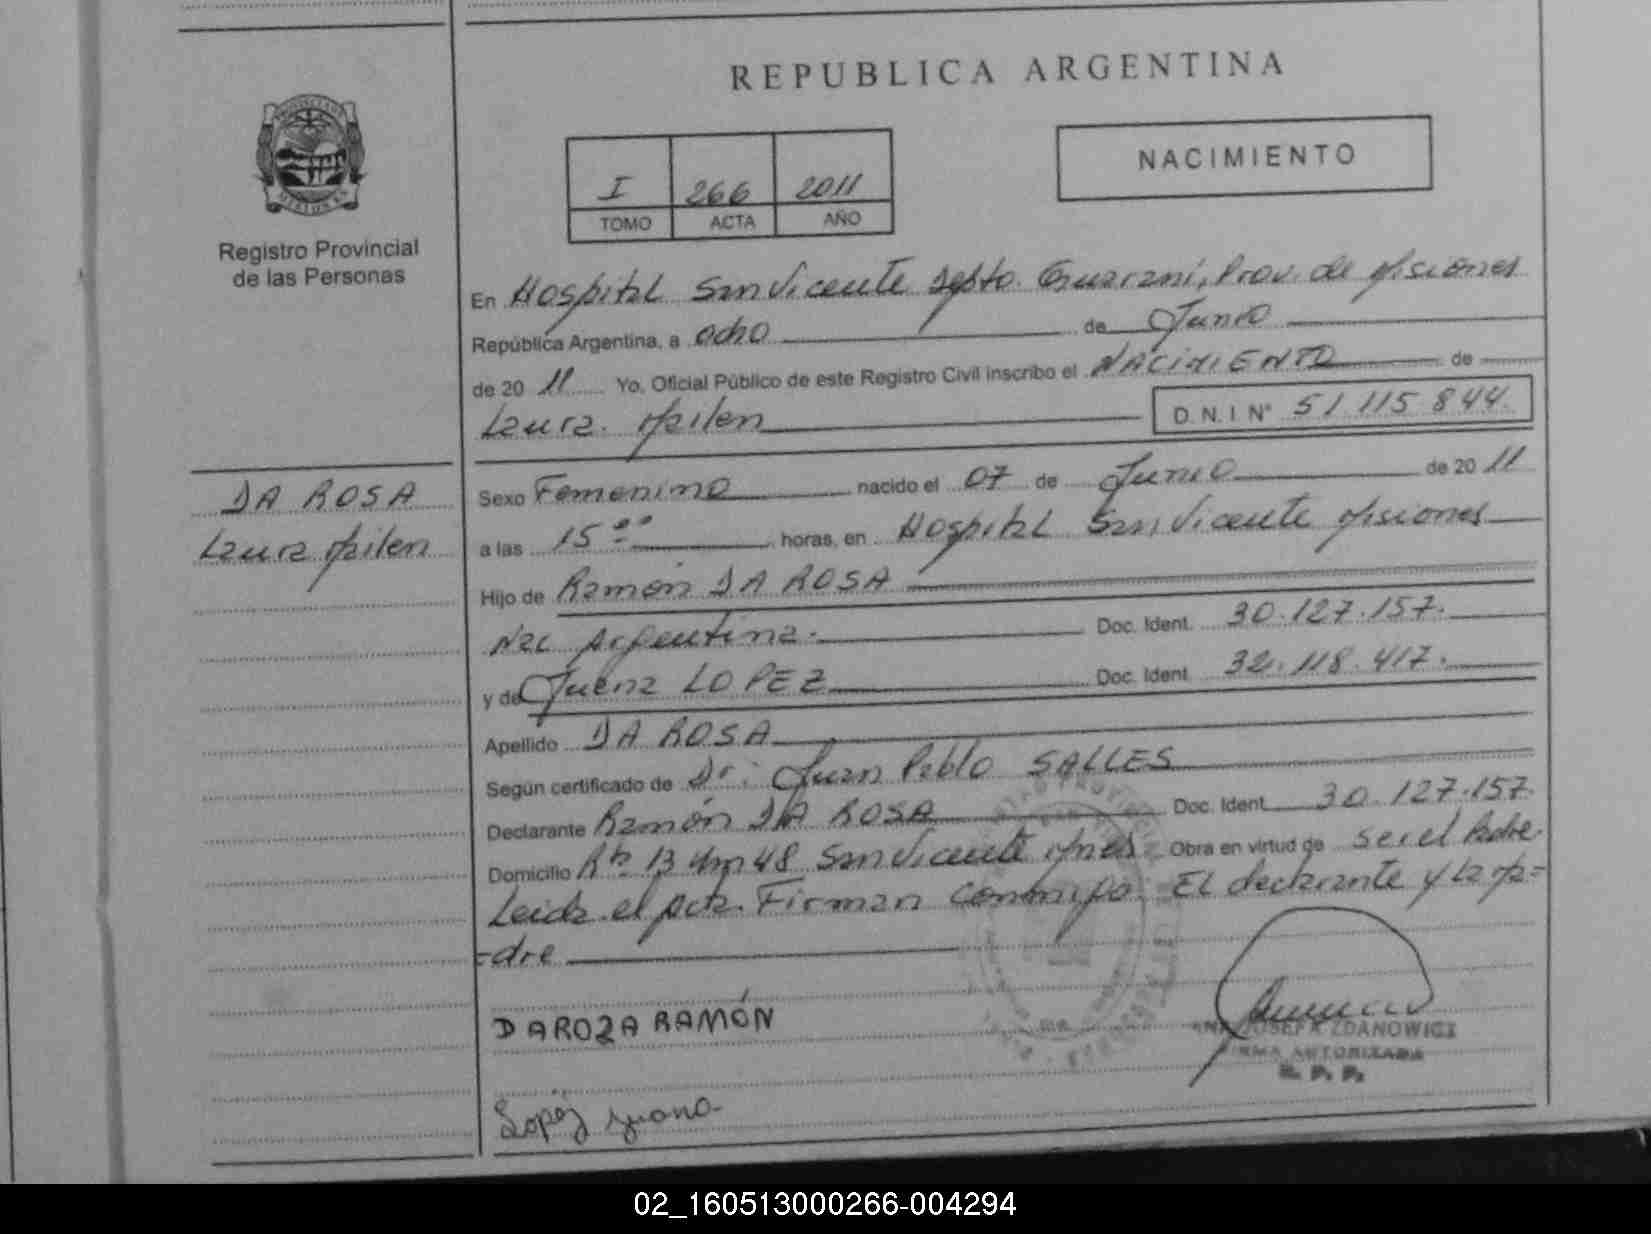 REPUBLICA ARGENTINA
NACIMIENTO
I 266 2011
TOMO ACTA AÑO
Registro Provincial
de las Personas
En Hospital San Vicente Depto. Guaraní, Prov. de Misiones
República Argentina, a ocho de Junio
de 20 11 Yo, Oficial Público de este Registro Civil inscribo el NACIMIENTO de
Laura Mailen D.N.I Nº 51 115 844
DA ROSA
Laura Mailen
Sexo Femenino nacido el 07 de Junio de 20 11
a las 15 horas, en Hospital San Vicente Misiones
Hijo de Ramón DA ROSA
Nac Argentina. Doc. Ident. 30.127.157.
y de Juana LOPEZ Doc. Ident. 32.118.417.
Apellido DA ROSA
Según certificado de Dr: Juan Pablo SALLES
Declarante Ramón DA ROSA Doc. Ident. 30.127.157.
Domicilio Rta 13 Km 48 San Vicente Mnes Obra en virtud de ser el Padre.
Leida el Acta. Firman conmigo El declarante y la Ma=
=dre
DAROZA RAMÓN
ANA JOSEFA ZDANOWICZ
FIRMA AUTORIZADA
R. P. P.
Lopez Juana
02_160513000266-004294